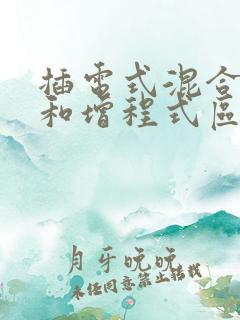 插電式混合
和增程式區
月牙晚晚
未经同意禁止转载